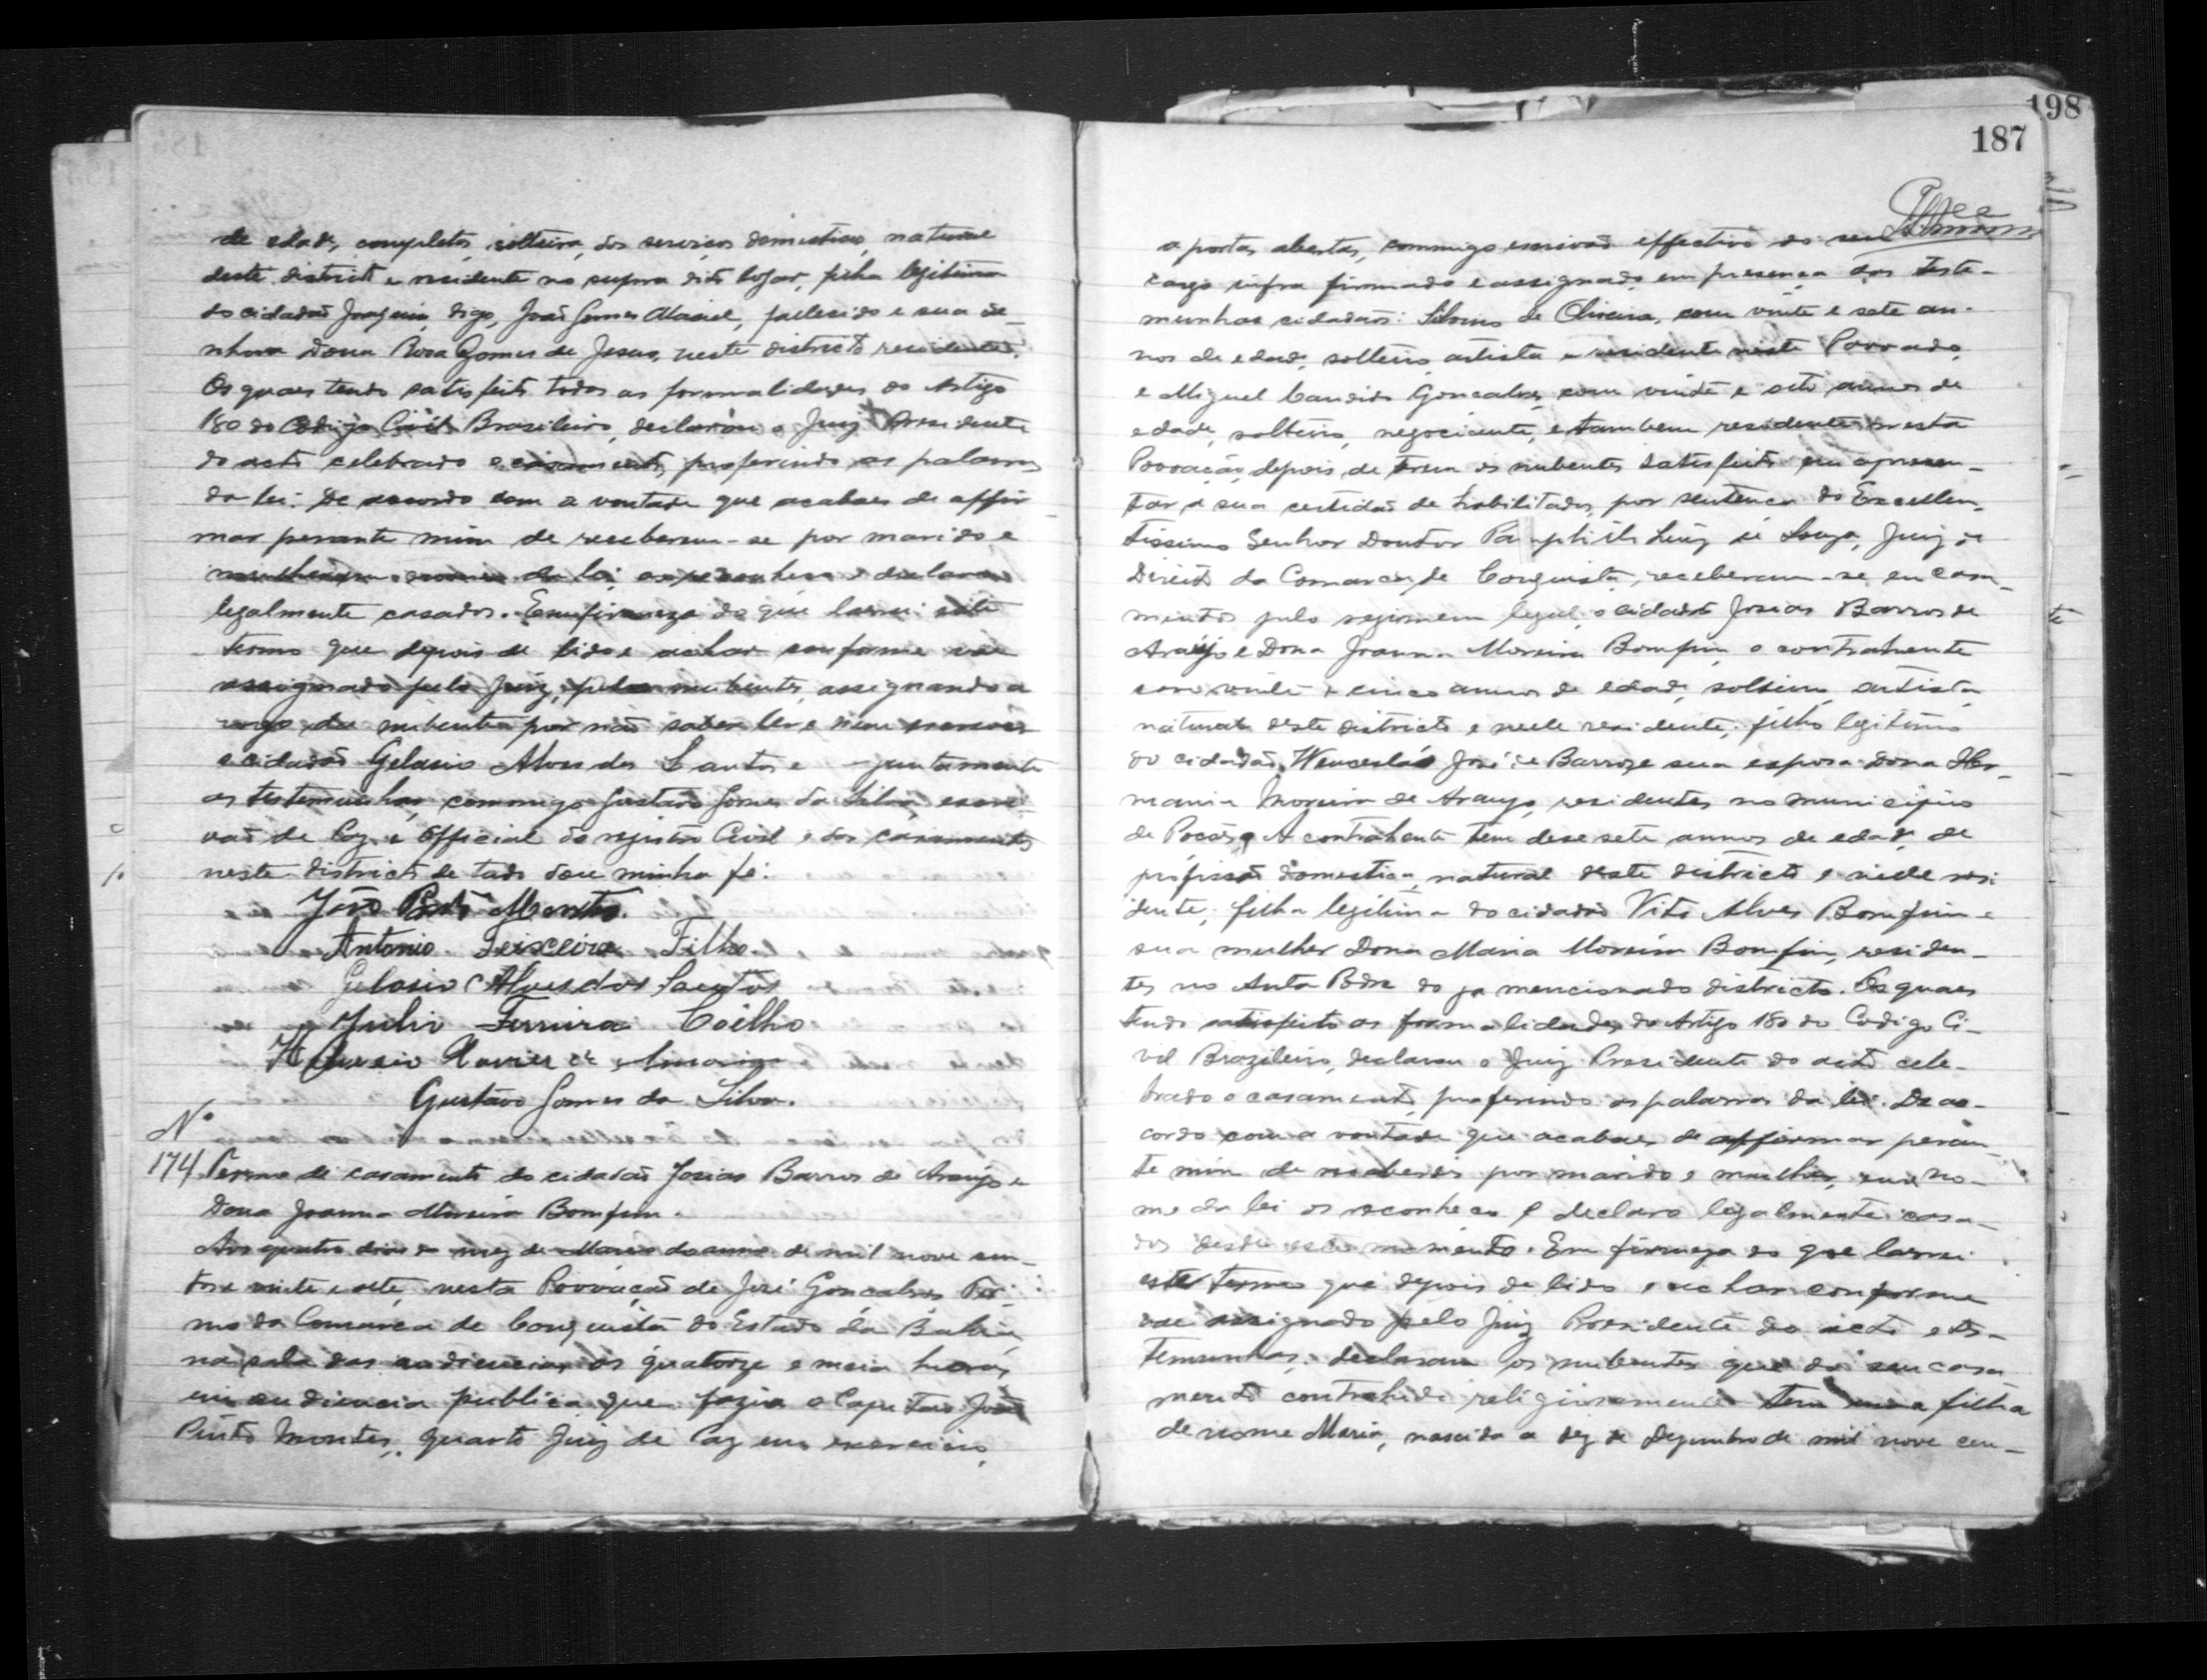 de edade, completos, solteira, dos serviços domesticos, natural
deste districto e residente no supra dito logar, filha legitima
do cidadão Joaquim, digo, João Gomes Maciel, fallecido e sua se-
nhora Dona Rosa Gomes de Jesus, neste districto residentes.
Os quaes tendo satisfeito todas as formalidades do Artigo
180 do Codigo Civil Brasileiro, declarou o Juiz Presidente
do acto celebrado o casamento, proferindo as palavras
da lei: De accordo com a vontade que acabaes de affir
mar perante mim de receberem-se por marido e
mulher, em nome da lei os reconheço e declaro
legalmente casados. Em firmeza do que lavrei este
termo que depois de lido e achar conforme vae
assignado pelo Juiz, pelos nubentes, assignando a
rogo da nubente por não saber ler e nem escrever
o cidadão Gelasio Alves dos Santos e juntamente
as testemunhas, commigo Gustavo Gomes da Silva, escri-
vão de Paz e Official do registro Civil e dos casamentos
neste districto de tudo dou minha fé.
João Pinto Montes.
Antonio Teixeira Filho.
Gelasio Alves dos Santos
Julio Ferreira Coêlho
Xavier de
Gustavo Gomes da Silva.
Nº
174 Termo de casamento do cidadão Josias Barros de Araújo e
Dona Joanna Moreira Bomfim.
Aos quatro dias do mez de Março do anno de mil nove cen-
tos e vinte e sete, nesta Povoação de José Gonçalves Ter-
mo da Comarca de Conquista do Estado da Bahia
na sala das audiencias, ás quatorze e meia horas,
em audiencia publica que fazia o Capitão João
Pinto Montes, quarto Juiz de Paz em exercicio,
198
187
a portas abertas, commigo escrivão effectivo do seu
cargo infra firmado e assignado em presença das teste-
munhas cidadãos: de Oliveira, com vinte e sete an-
nos de edade, solteiro, artista e residente neste Povoado,
e Miguel Candido Gonçalves, com vinte e oito annos de
edade, solteiro, negociante, e tambem residente nesta
Povoação, depois de terem os nubentes satisfeito em apresen-
tar a sua certidão de habilitados, por sentença do Excellen-
tissimo Senhor Doutor Pamphilo Luiz de Souza, Juiz de
Direito da Comarca de Conquista, receberam-se, em casa-
mento pelo regimem legal, o cidadão Josias Barros de
Araújo e Dona Joanna Moreira Bomfim, o contrahente
com vinte e cinco annos de edade, solteiro, artista,
natural deste districto e nelle residente, filho legitimo
do cidadão Wencesláo José de Barros e sua esposa Dona Her-
mania Moreira de Araujo, residentes no municipio
de Poções, A contrahente tem desesete annos de edade, de
profissão domestica, natural deste districto e nelle resi
dente, filha legitima do cidadão Vito Alves Bomfim e
sua mulher Dona Maria Moreira Bomfim, residen-
tes no do ja mencionado districto. Os quaes
tendo satisfeito as formalidades do Artigo 180 do Codigo Ci-
vil Brazileiro, declarou o Juiz Presidente do acto cele-
brado o casamento, proferindo as palavras da lei. De ac-
cordo com a vontade que acabaes de affirmar peran-
te mim de receberdes por marido e mulher, em no-
me da lei os reconheço e declaro legalmente casa-
dos desde este momento. Em firmeza do que lavrei
este termo que depois de lido e achar conforme
vae assignado pelo Juiz Presidente do acto e tes-
temunhas, declaram os nubentes que do seu casa-
mento contrahido religiosamente tem uma filha
de nome Maria, nascida a dez de Dezembro de mil nove cen-